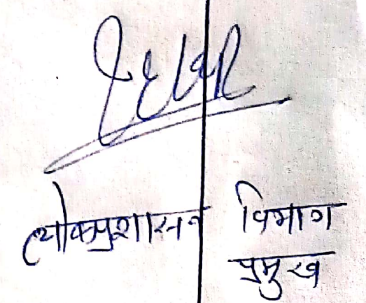 लोकप्रशासन विभाग
प्रमुख